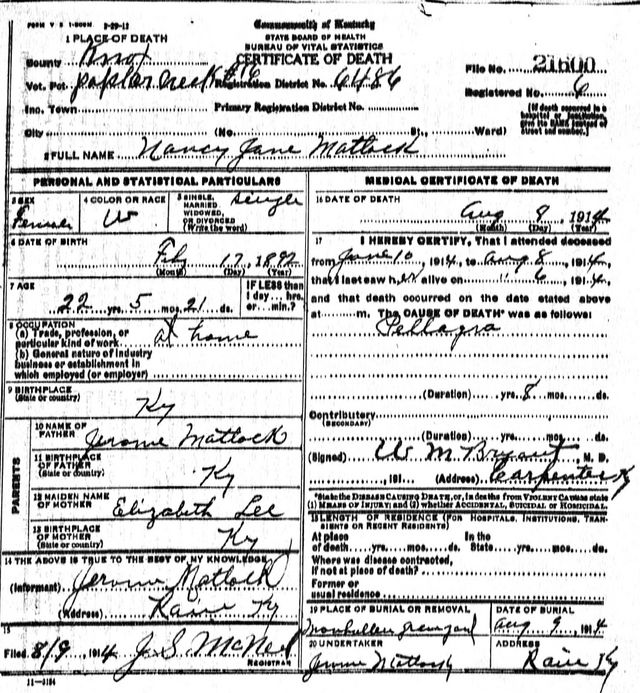 FORM V S 1-500M. 3-29-12
Commonwealth of Kentucky
STATE BOARD OF HEALTH
BUREAU OF VITAL STATISTICS
CERTIFICATE OF DEATH
1 PLACE OF DEATH
County Knox
Vot. Pct. poplar creek #16 Registration District No. 6486
File No. 21600
Registered No. 6
Inc. Town Primary Registration District No.
(If death occurred in a hospital or institution, give its NAME instead of street and number.)
City (No. St., Ward)
2 FULL NAME Nancy Jane Matlock
PERSONAL AND STATISTICAL PARTICULARS
3 SEX
Female
4 COLOR OR RACE
W
5 SINGLE, MARRIED, WIDOWED, OR DIVORCED (Write the word)
Single
6 DATE OF BIRTH
Feb 17, 1892
(Month) (Day) (Year)
7 AGE
22 yrs. 5 mos. 21 ds.
IF LESS than 1 day... hrs. or... min.?
8 OCCUPATION
(a) Trade, profession, or particular kind of work at home
(b) General nature of industry business or establishment in which employed (or employer)
9 BIRTHPLACE
(State or country)
Ky
PARENTS
10 NAME OF FATHER Jerome Matlock
11 BIRTHPLACE OF FATHER (State or country) Ky
12 MAIDEN NAME OF MOTHER Elizabeth Lee
13 BIRTHPLACE OF MOTHER (State or country) Ky
14 THE ABOVE IS TRUE TO THE BEST OF MY KNOWLEDGE
(Informant) Jerome Matlock
(Address) Ky
15
Filed 8/9, 1914 J. S. McNeil
REGISTRAR
11-3184
MEDICAL CERTIFICATE OF DEATH
16 DATE OF DEATH
Aug 8, 1914
(Month) (Day) (Year)
17 I HEREBY CERTIFY, That I attended deceased
from June 10, 1914, to Aug 8, 1914,
that I last saw her alive on " 6, 1914,
and that death occurred on the date stated above
at m. The CAUSE OF DEATH* was as follows:
Pellagra
(Duration) yrs. 8 mos. ds.
Contributory
(SECONDARY)
(Duration) yrs. mos. ds.
(Signed) W M Bryant, M. D.
, 191 (Address) Carpenter Ky
*State the DISEASE CAUSING DEATH, or, in deaths from VIOLENT CAUSES state (1) MEANS OF INJURY; and (2) whether ACCIDENTAL, SUICIDAL or HOMICIDAL.
18 LENGTH OF RESIDENCE (FOR HOSPITALS, INSTITUTIONS, TRANSIENTS OR RECENT RESIDENTS)
At place of death yrs. mos. ds. In the State yrs. mos. ds.
Where was disease contracted,
if not at place of death?
Former or
usual residence
19 PLACE OF BURIAL OR REMOVAL
graveyard
DATE OF BURIAL
Aug 9, 1914
20 UNDERTAKER
Jerome Matlock
ADDRESS
Ky